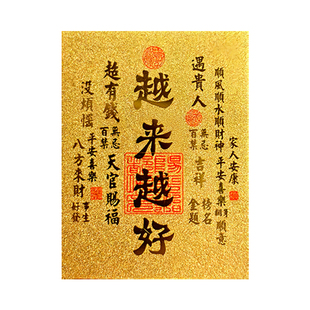 家人安康
順風順水順財神
平安喜樂
順意
遇貴人
百無禁忌
吉祥
金榜題名
越来越好
超有錢
百無禁忌
天官賜福
沒煩惱
平安喜樂
八方来財
好事發生